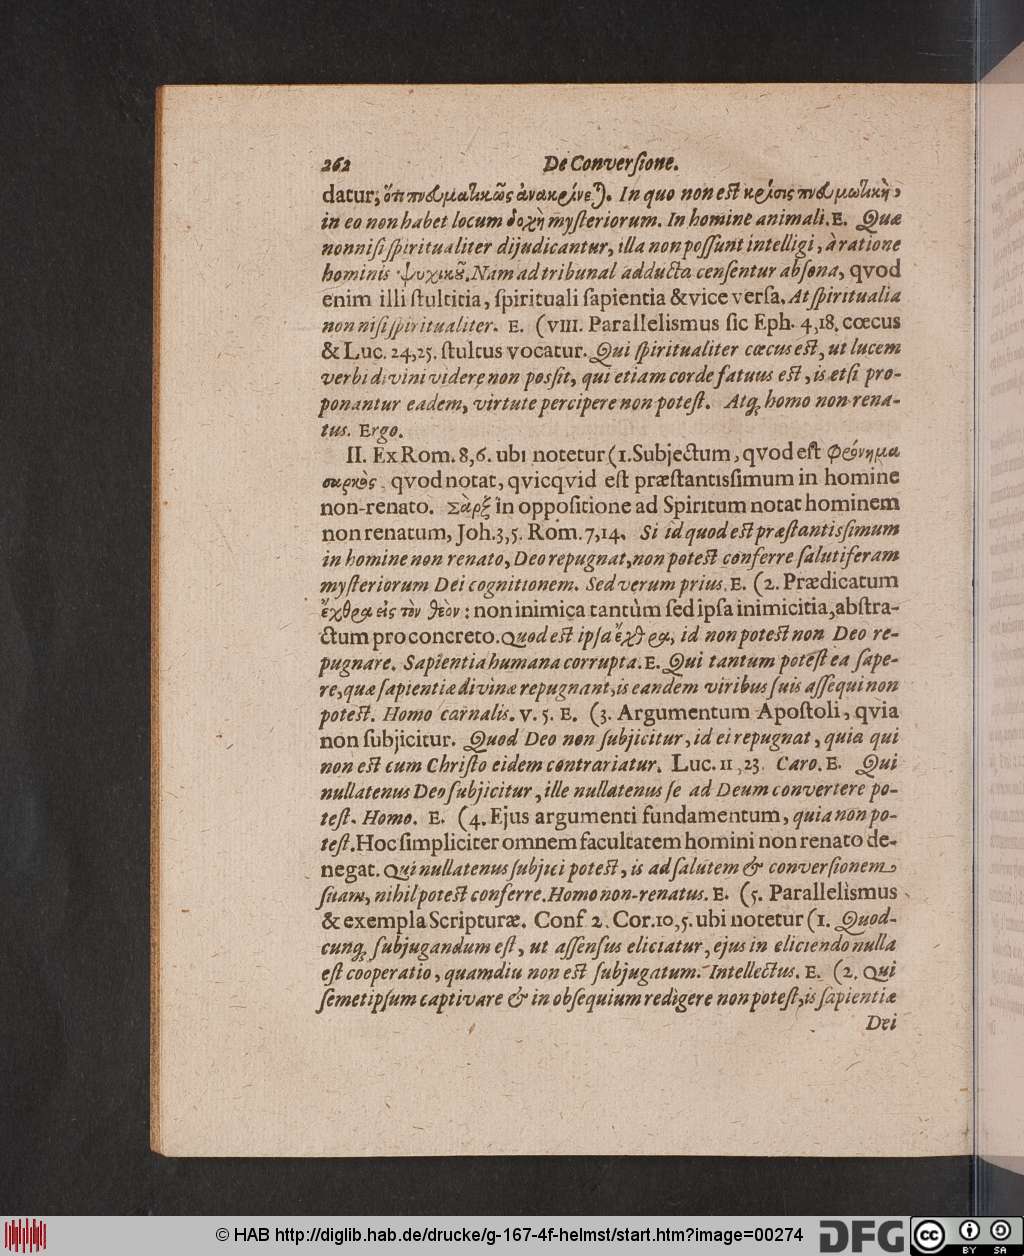 262 De Converſione.
datur, ὅτι πνευματικῶς ἀνακρίνε). In quo non eſt κρίσις πνευματικὴ,
in eo non habet locum δοχὴ myſteriorum. In homine animali. E. Quæ
non niſi ſpiritualiter dijudicantur, illa non poſſunt intelligi, à ratione
hominis ψυχικοῦ. Nam ad tribunal adducta cenſentur abſona, qvod
enim illi ſtultitia, ſpirituali ſapientia & vice verſa. At ſpiritualia
non niſi ſpiritualiter. E. (VIII. Parallelismus ſic Eph. 4,18. cœcus
& Luc. 24,25. ſtultus vocatur. Qui ſpiritualiter cœcus eſt, ut lucem
verbi divini videre non posſit, qui etiam corde fatuus eſt, is etſi pro-
ponantur eadem, virtute percipere non poteſt. Atq; homo non rena-
tus. Ergo.
II. Ex Rom. 8,6. ubi notetur (1. Subjectum, qvod eſt Φρόνημα
σαρκὸς, qvod notat, qvicqvid eſt præſtantisſimum in homine
non-renato. Σὰρξ in oppoſitione ad Spiritum notat hominem
non renatum, Joh. 3,5. Rom. 7,14. Si id quod eſt præſtantisſimum
in homine non renato, Deo repugnat, non poteſt conferre ſalutiferam
myſteriorum Dei cognitionem. Sed verum prius. E. (2. Prædicatum
ἔχθρα εἰς τὸν θεὸν: non inimica tantùm ſed ipſa inimicitia, abſtra-
ctum pro concreto. Quod eſt ipſa ἔχθρα, id non poteſt non Deo re-
pugnare. Sapientia humana corrupta. E. Qui tantum poteſt ea ſape-
re, quæ ſapientiæ divinæ repugnant, is eandem viribus ſuis aſſequi non
poteſt. Homo carnalis. v. 5. E. (3. Argumentum Apoſtoli, qvia
non ſubjicitur. Quod Deo non ſubjicitur, id ei repugnat, quia qui
non eſt cum Chriſto eidem contrariatur. Luc. 11,23. Caro. E. Qui
nullatenus Deo ſubjicitur, ille nullatenus ſe ad Deum convertere po-
teſt. Homo. E. (4. Ejus argumenti fundamentum, quia non po-
teſt. Hoc ſimpliciter omnem facultatem homini non renato de-
negat. Qui nullatenus ſubjici poteſt, is ad ſalutem & converſionem
ſuam, nihil poteſt conferre. Homo non-renatus. E. (5. Parallelismus
& exempla Scripturæ. Conf 2. Cor. 10,5. ubi notetur (1. Quod-
cunq; ſubjugandum eſt, ut aſſenſus eliciatur, ejus in eliciendo nulla
eſt cooperatio, quamdiu non eſt ſubjugatum. Intellectus. E. (2. Qui
ſemetipſum captivare & in obſequium redigere non poteſt, is ſapientiæ
Dei
© HAB http://diglib.hab.de/drucke/g-167-4f-helmst/start.htm?image=00274
DFG
cc BY SA